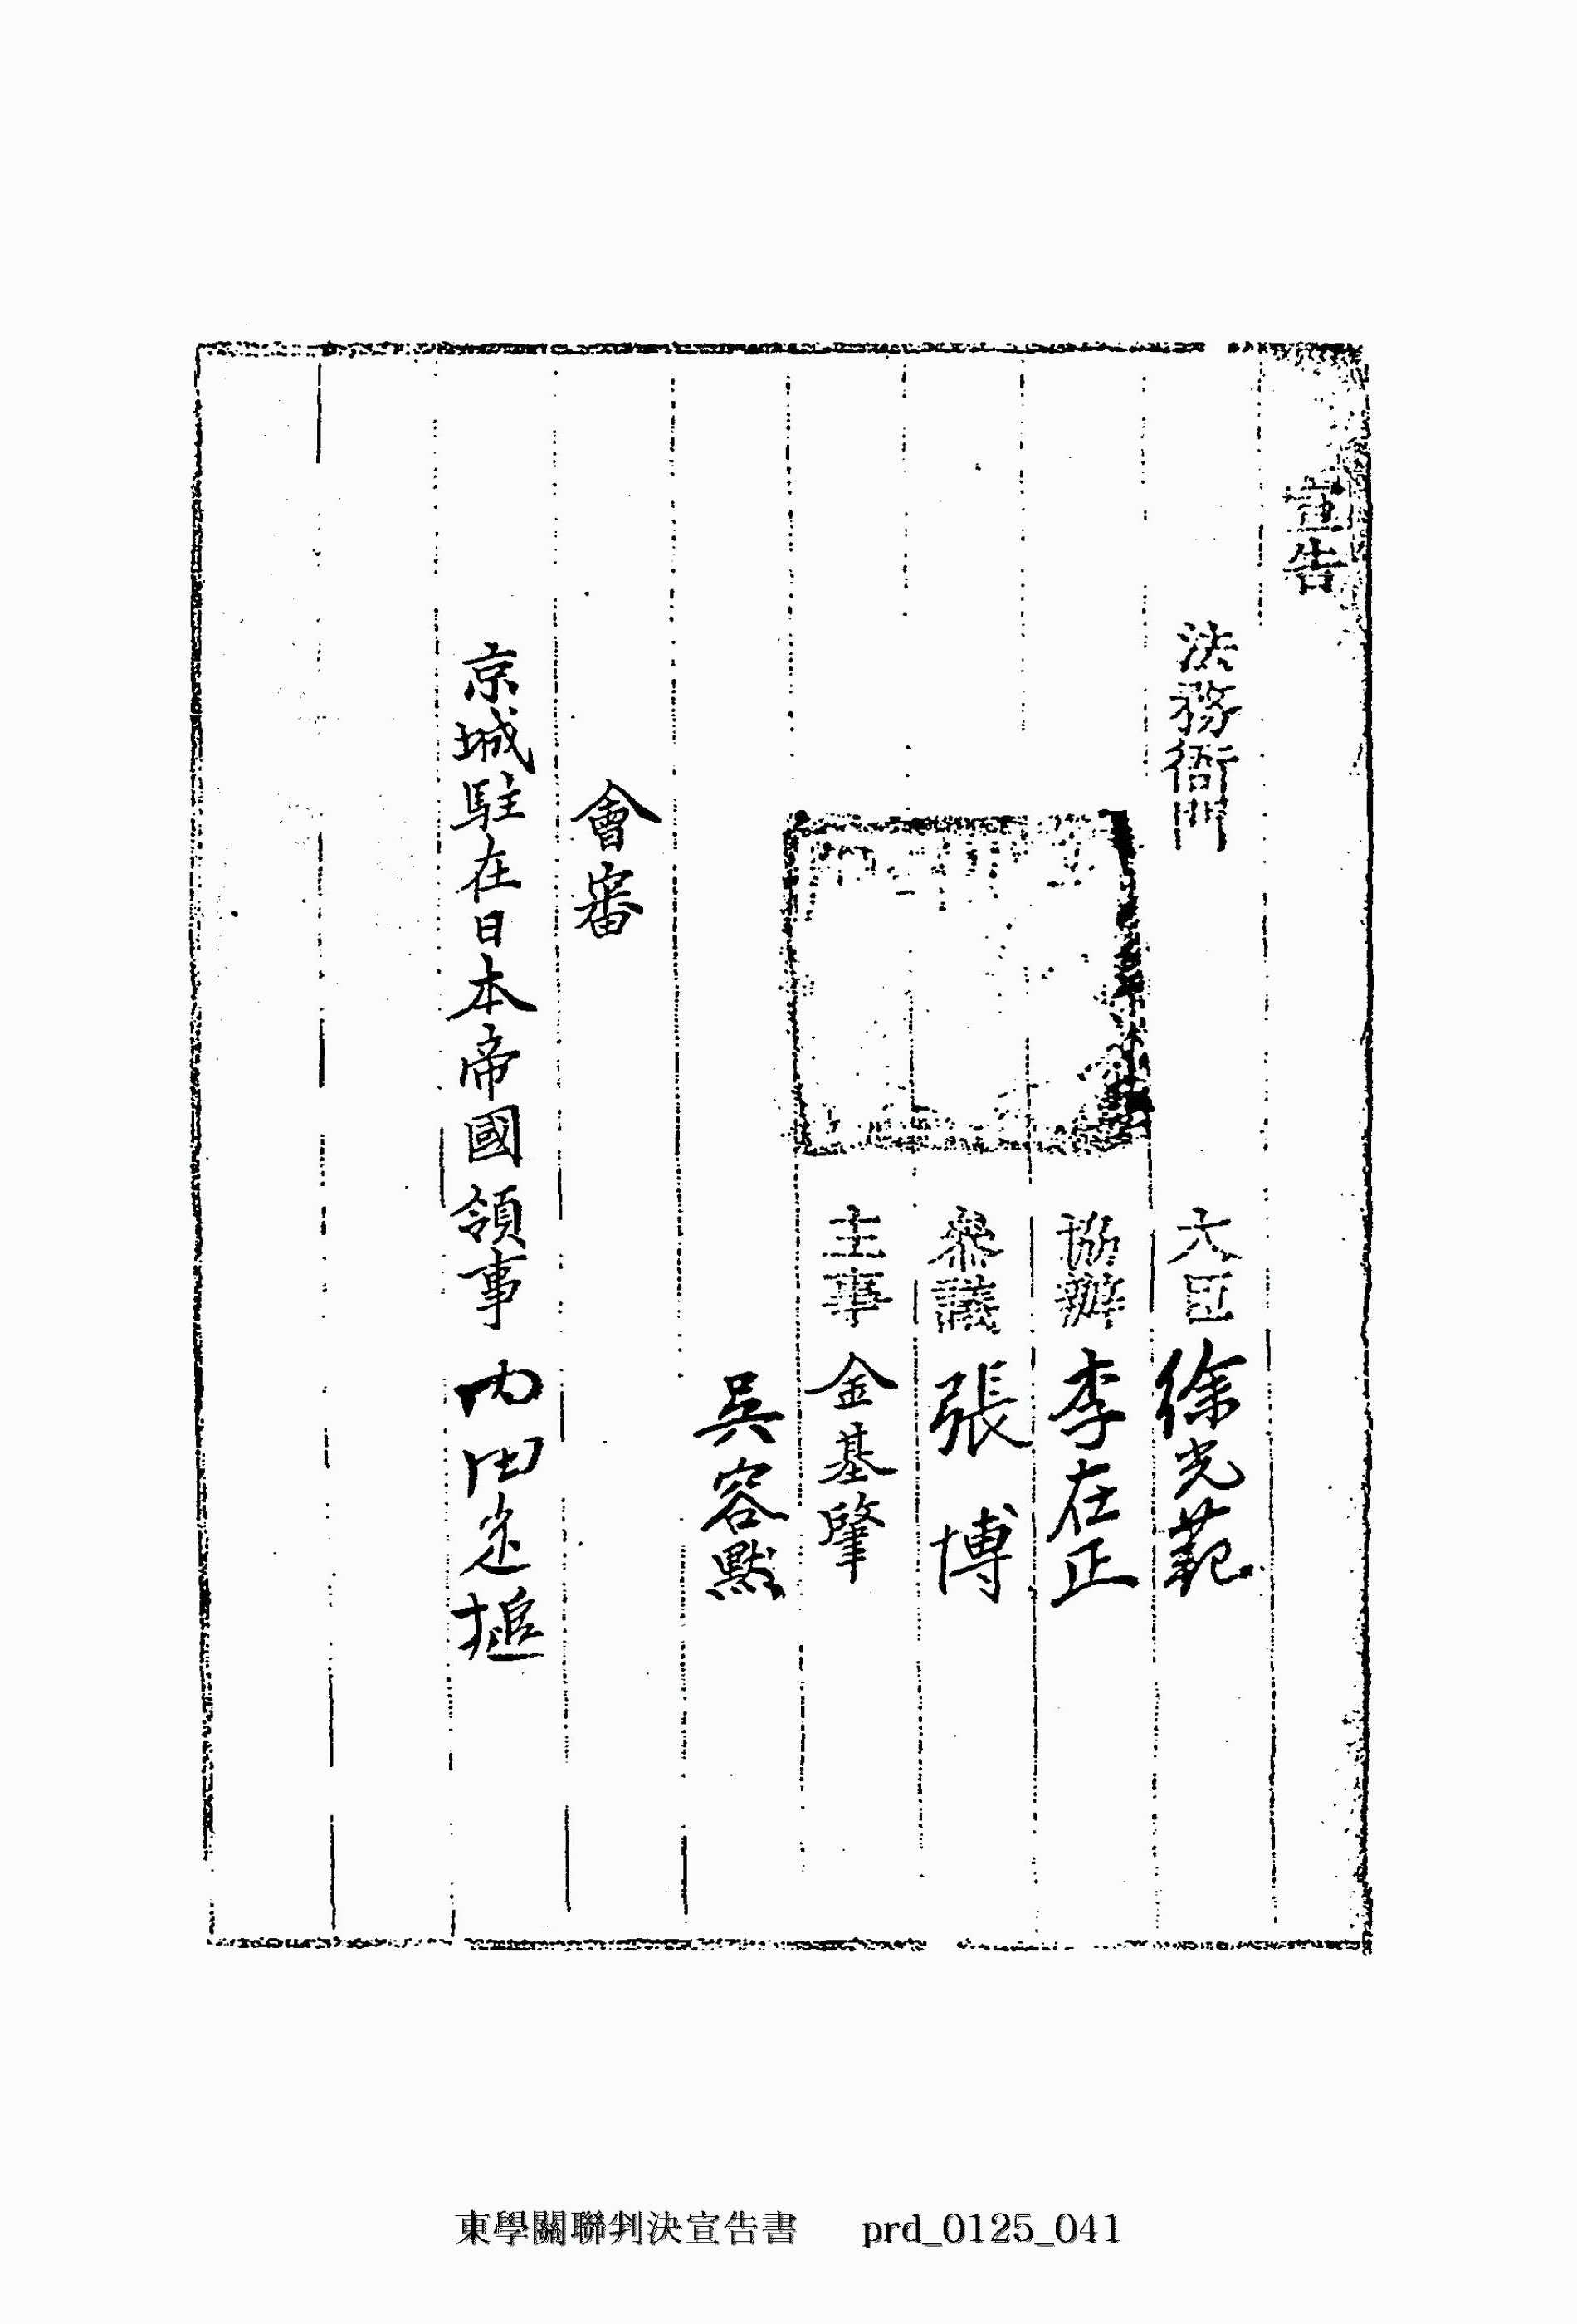 宣告
法務衙門
大臣 徐光範
協辦 李在正
參議 張博
主事 金基肇
吳容黙
會審
京城駐在日本帝國領事 內田定槌
東學關聯判決宣告書 prd_0125_041